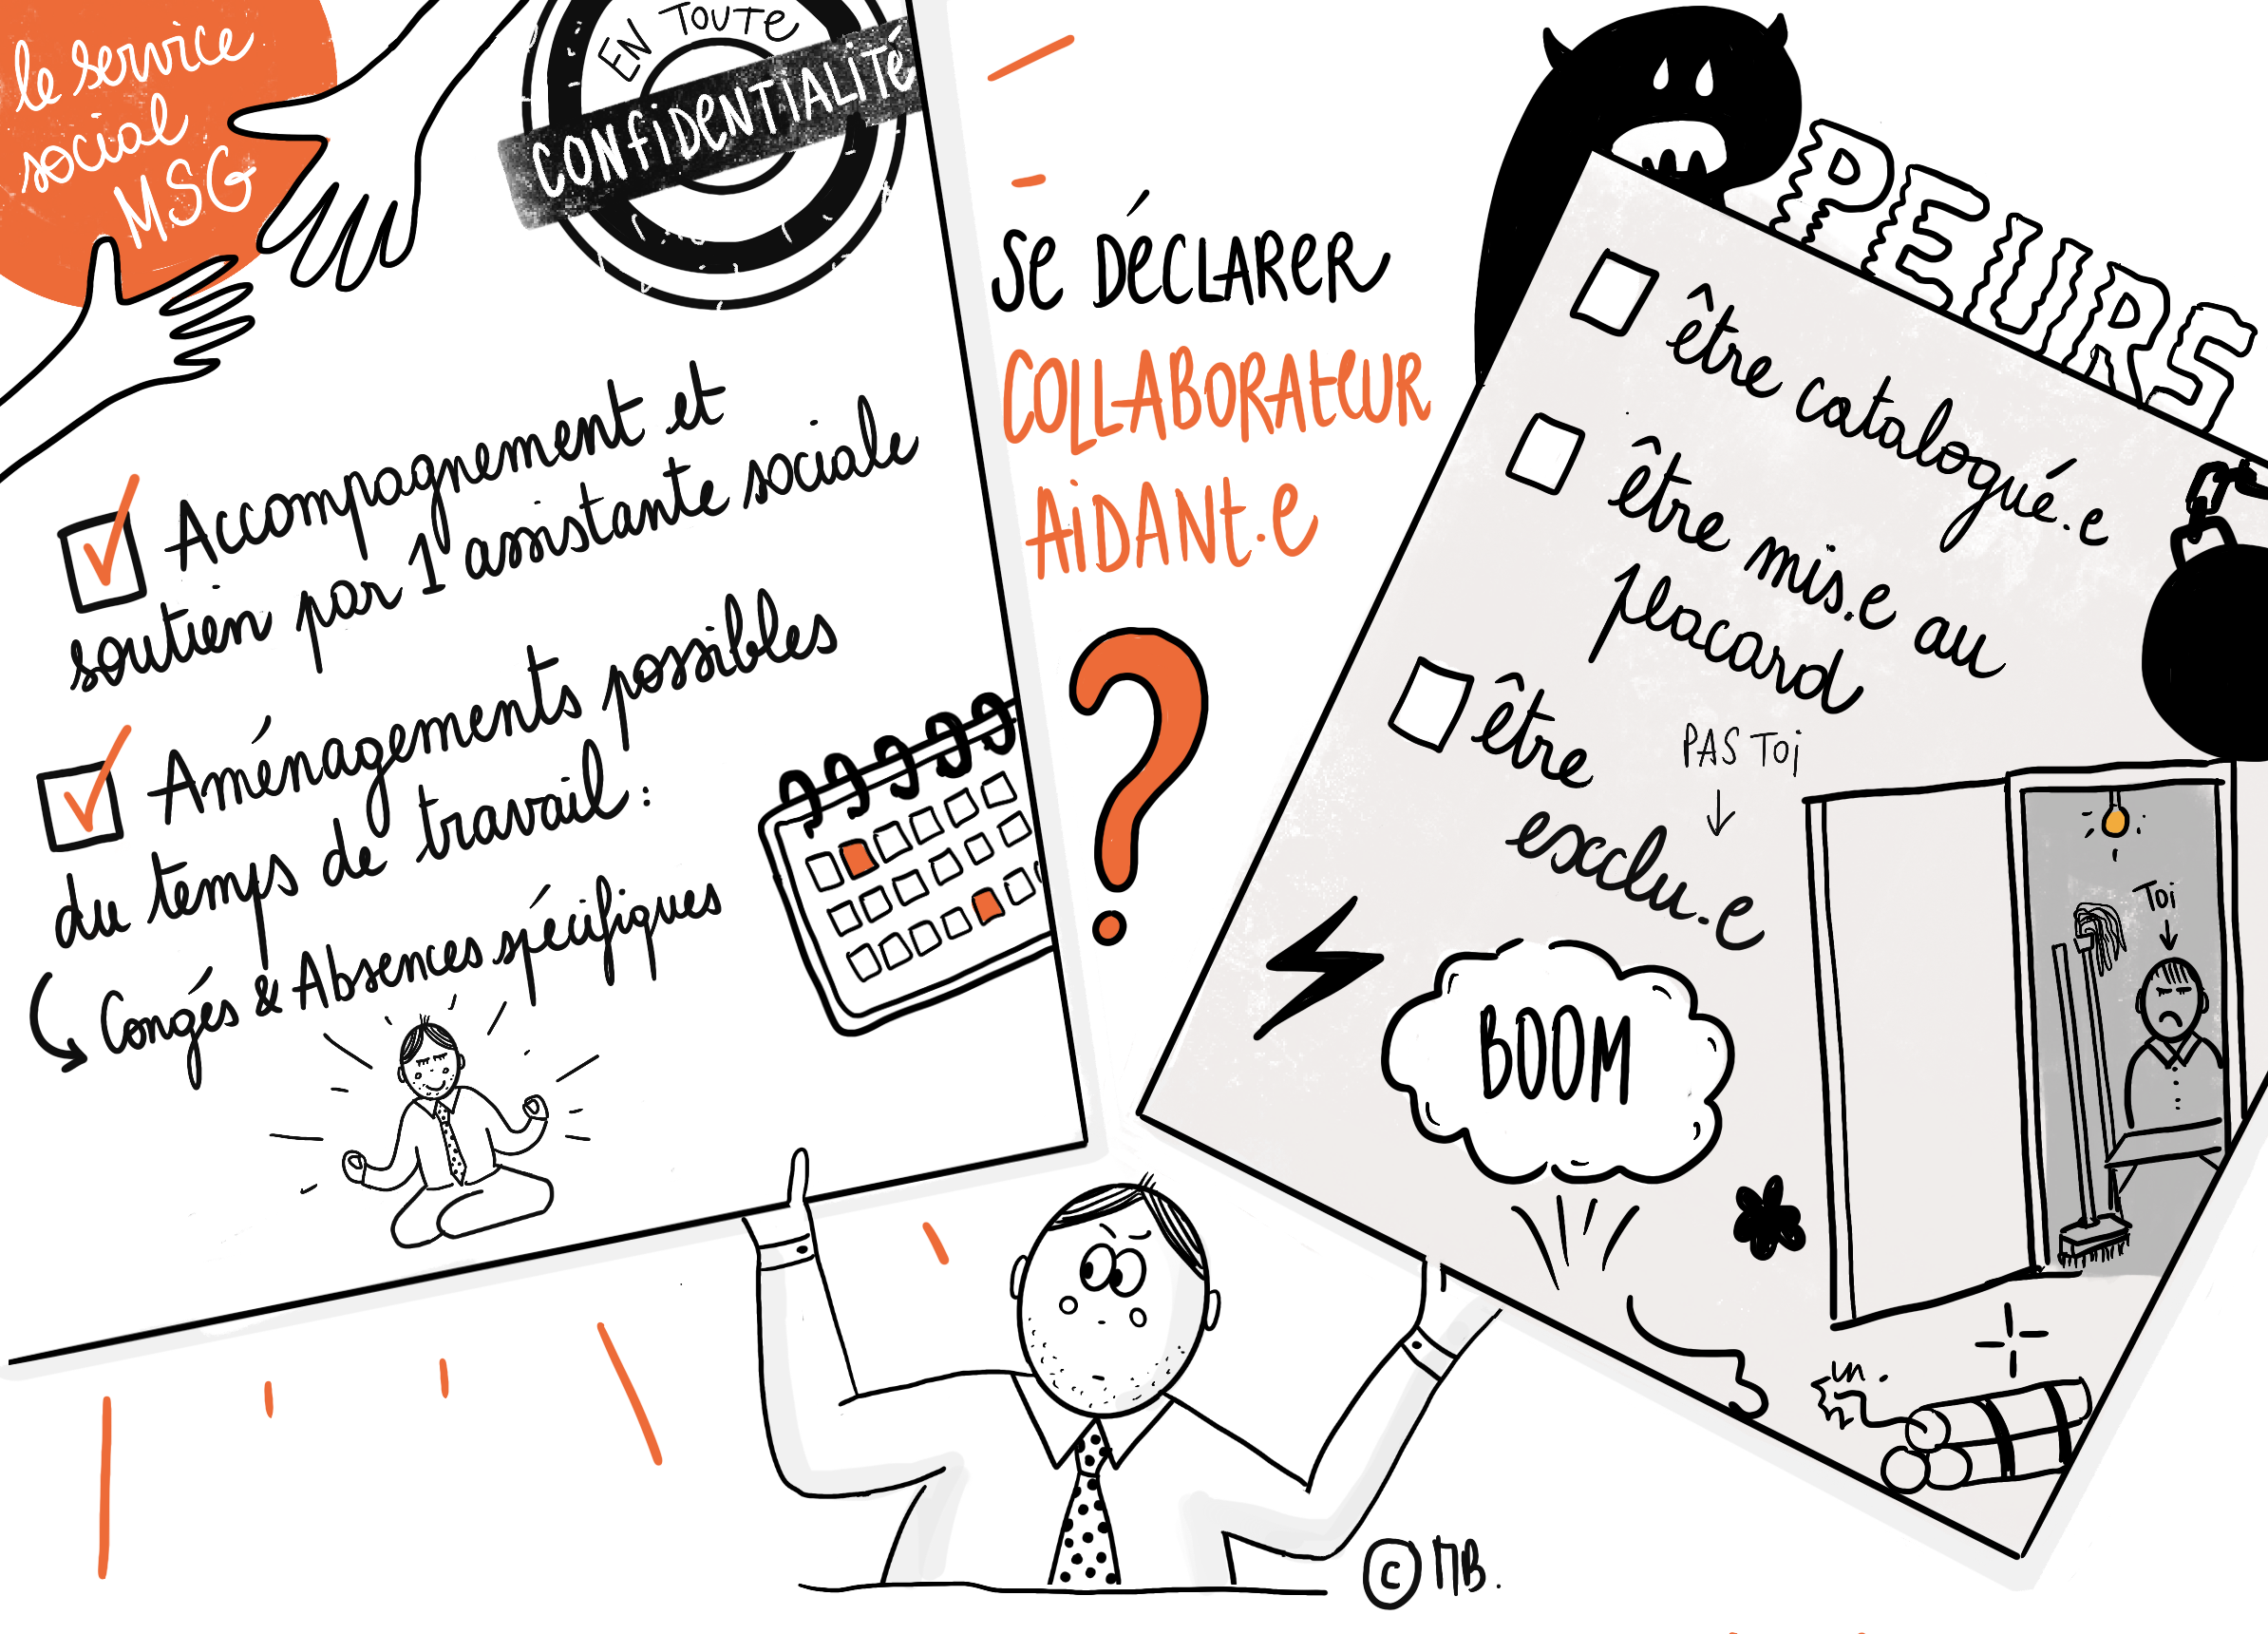 le service
social
MSG
EN TOUTE
CONFIDENTIALITÉ
Accompagnement et
soutien par 1 assistante sociale
Aménagements possibles
du temps de travail :
Congés & Absences spécifiques
SE DÉCLARER
COLLABORATEUR
AIDANT.E
?
PEURS
être catalogué.e
être mis.e au
placard
être
exclu.e
PAS TOI
TOI
BOOM
© MB.